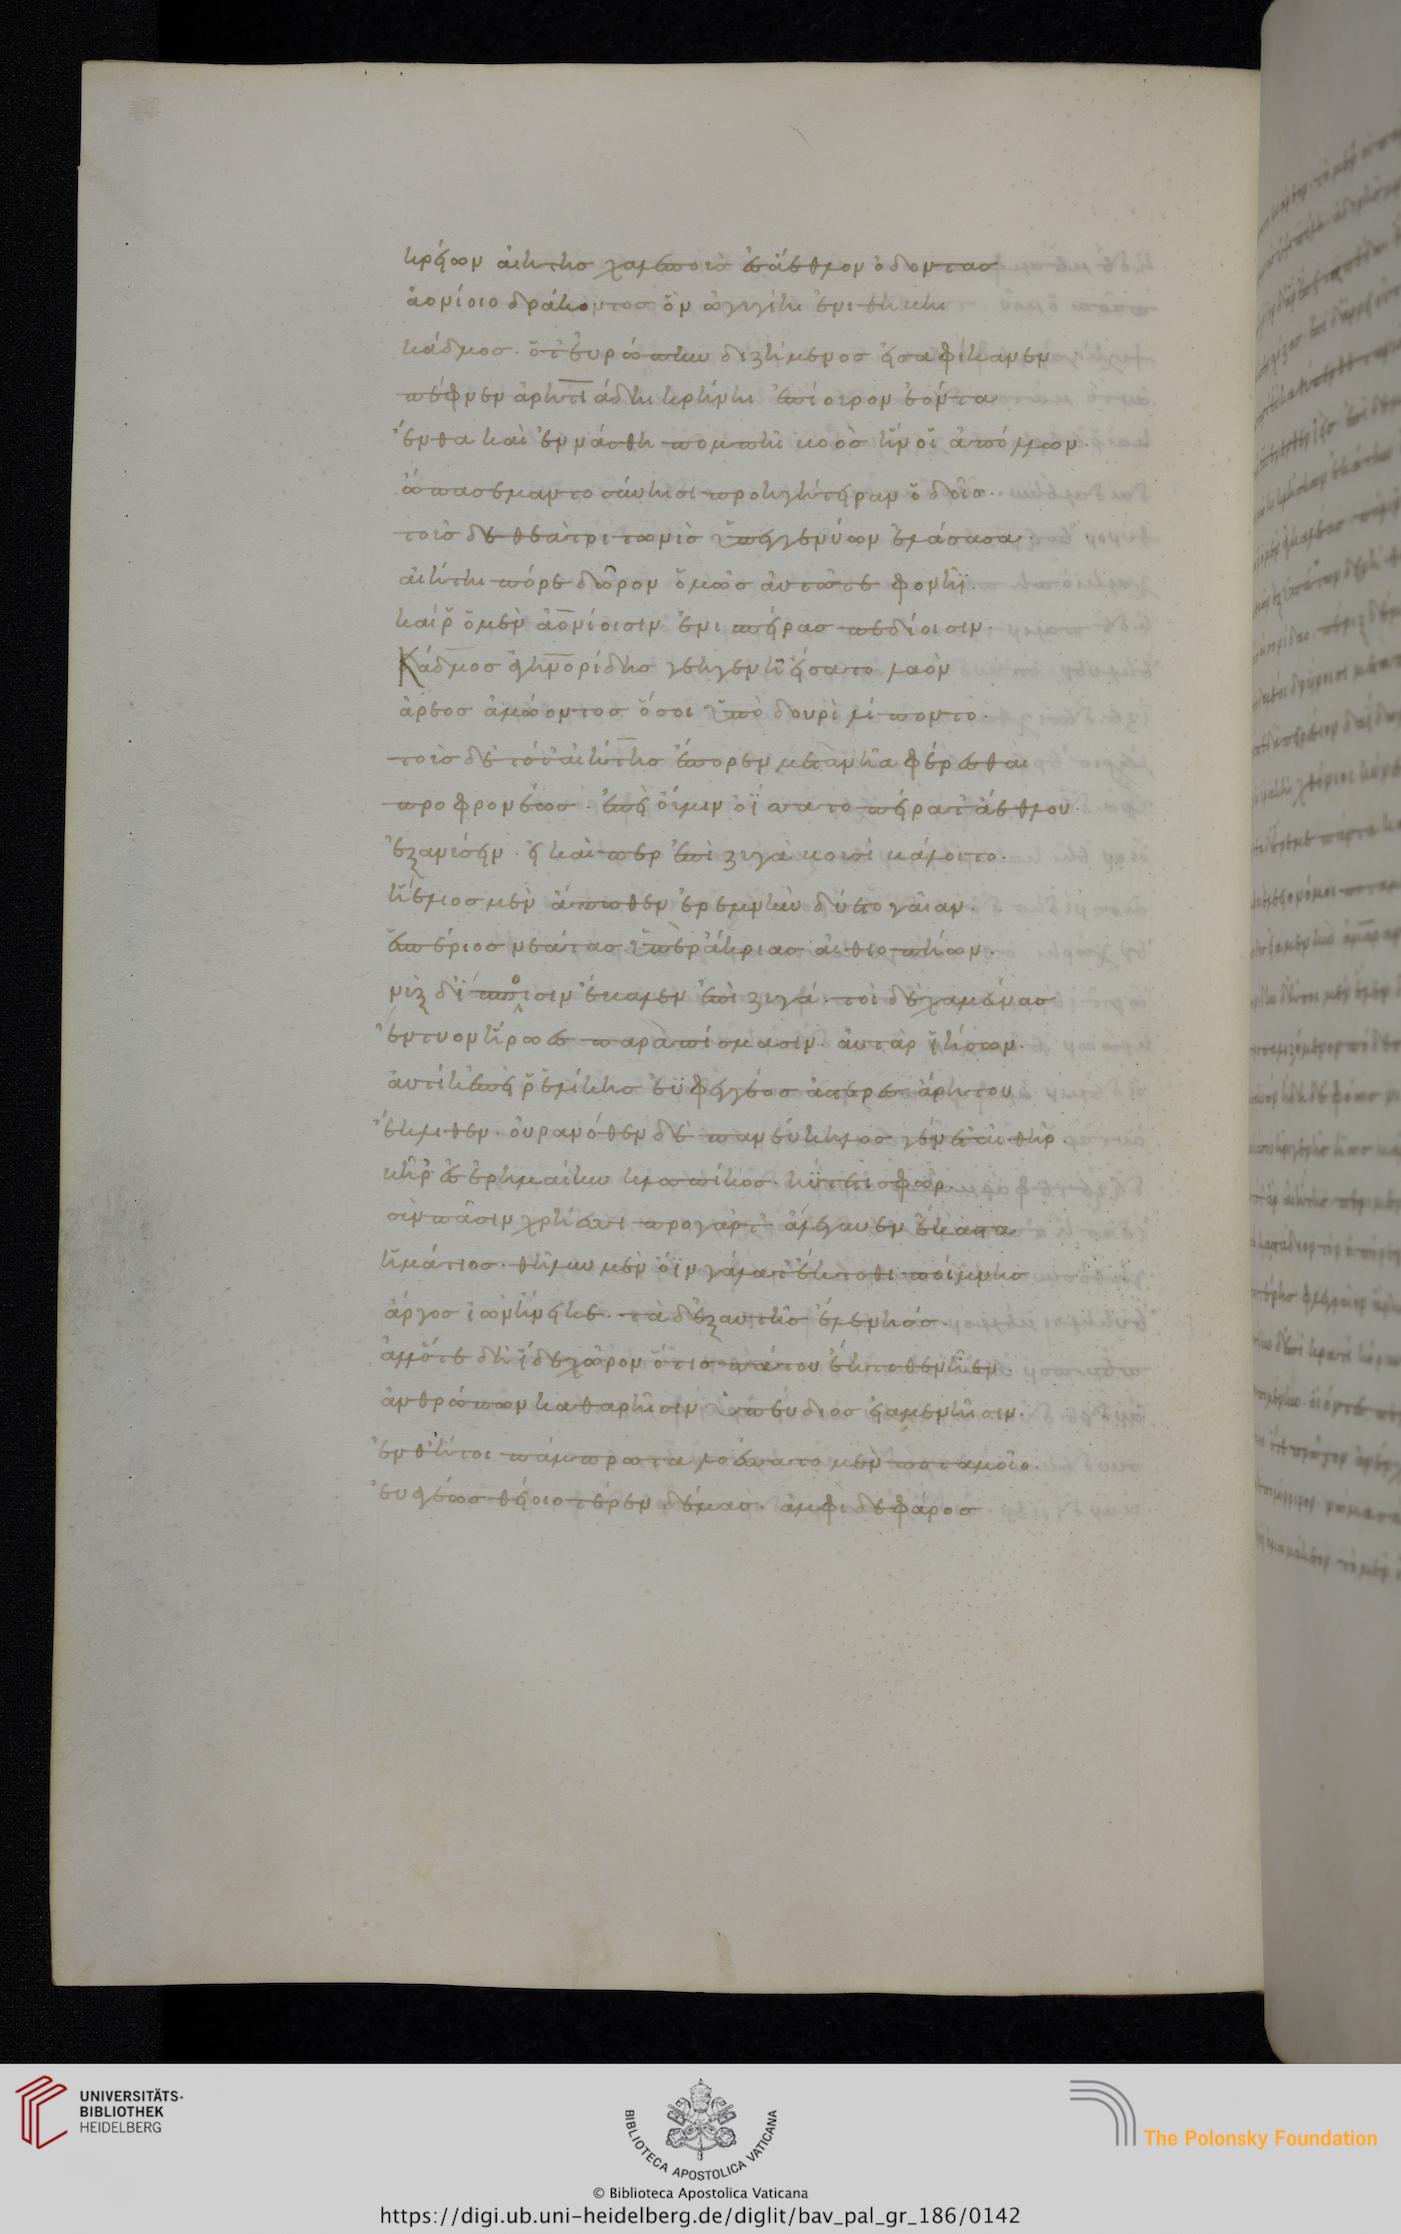 κρείων αἰήτησ χαλεποὺσ ἐσ ἄεθλον ὀδόντασ
ἀονίοιο δράκοντοσ ὃν ὠγυγίηι ἐνὶ θήβηι
κάδμοσ· ὅτ' ἐυρώπην διζήμενοσ εἰσαφίκανεν
πέφνεν ἀρητιάδηι κρήνηι ἐπίουρον ἐόντα
ἔνθα καὶ ἐννάσθη πομπῆι βοὸσ ἥν οἱ ἀπόλλων·
ὤπασε μαντοσύνηισι προηγήτειραν ὁδοῖο·
τοὺσ δὲ θεὰ τριτωνὶσ ὑπεὶ γενύων ἐλάσασα·
αἰήτηι πόρε δῶρον ὁμῶσ ἀυτῶ τε φονῆϊ·
καί ῥ' ὁ μὲν ἀονίοισιν ἐνὶ σπείρασ πεδίοισιν·
Κάδμοσ ἀγηνορίδησ γεηγενῆ εἵσατο λαὸν
ἄρεοσ ἀμώοντοσ ὅσοι ὑπὸ δουρὶ λίποντο·
τοὺσ δὲ τότ' ἀιήτησ ἔπορεν μετὰ νῆα φέρεσθαι
προφρονέωσ· ἐπεὶ ὄυ μιν ὀΐσσατο πείρατ' ἀέθλου·
ἐξανύσειν· εἰ καὶ περ ἐπὶ ζυγὰ βουσὶ βάλοιτο·
ἠέλιοσ μὲν ἄπωθεν ἐρεμνὴν δύετο γαῖαν·
ἑσπέριοσ νεάτασ ὑπὲρ ἄκριασ ἀιθιοπήων·
νὺξ δ' ἵπποισιν ἔβαλεν ἐπὶ ζυγά· τοὶ δὲ χαμεύνασ
ἔντυον ἥρωεσ παρὰ πείσμασιν· ἀυτὰρ ἰήσων·
ἀυτίκ' ἐπεί ῥ' ἑλίκησ ἐϋφεγγέοσ ἀστέρεσ ἄρκτου
ἔκλιθεν· ὀυρανόθεν δὲ πανεύκηλοσ γένετ' ἀιθήρ·
βῆ ῥ' ἐσ ἐρημαίην κλωπήιοσ· ἠΰτε τισ φώρ·
σὺν πᾶσιν χρήεσσι προ γάρ τ' ἀλέγυνεν ἕκαστα
ἠμάτιοσ· θῆλυν μὲν ὄϊν γάλα τ' ἔκτοθι ποίμνησ
ἄργοσ ἰὼν ἤνεικε· τὰ δ' ἐξ αυτῆσ ἕλε νηόσ·
ἀλλ' ὅτε δὴ ἴδε χῶρον ὅτισ πάτου ἔκτοθεν ἦεν·
ἀνθρώπων καθαρῆισιν ὑπεύδιοσ εἱαμενῆισιν·
ἔνθ' ἤτοι πάμπρωτα λοέσσατο μὲν ποταμοῖο·
ἐυαγέωσ θείοιο τέρεν δέμασ· ἀμφὶ δὲ φάροσ
UNIVERSITÄTS-
BIBLIOTHEK
HEIDELBERG
BIBLIOTECA APOSTOLICA VATICANA
The Polonsky Foundation
© Biblioteca Apostolica Vaticana
https://digi.ub.uni-heidelberg.de/diglit/bav_pal_gr_186/0142